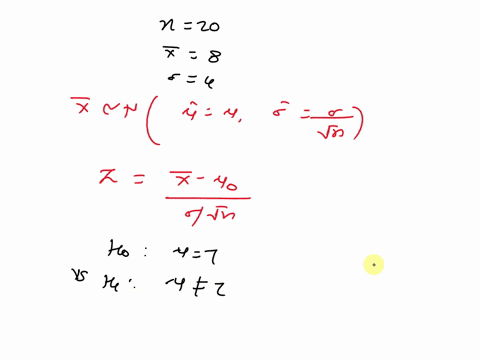 n = 20
x̄ = 8
σ = 4
x̄ ~ N ( μ̂ = μ, σ̂ = σ/√n )
Z = (x̄ - μ₀) / (σ/√n)
H₀ : μ = 7
vs H₁ : μ ≠ 7